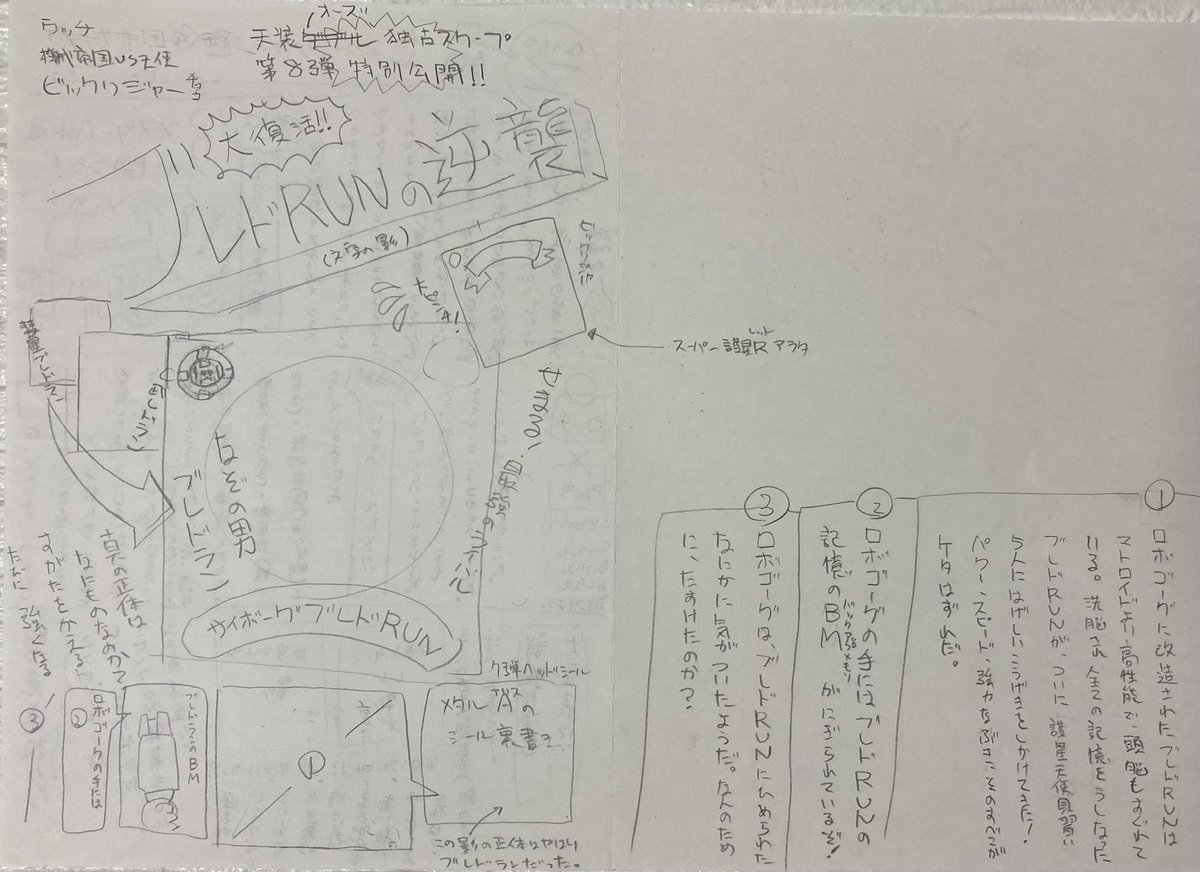 タッチ
機械帝国VS天使
ビックリジャーチョコ
オーズ
天装 独占スクープ
第8弾 特別公開!!
大復活!!
ブレドRUNの逆襲
(文字の影)
ビックリジャー
ピンチ!
レット
スーパー護星Rアラタ
彗星ブレドラン
せまる、最強のライバル
なぞの男
ブレドラン
サイボーグブレドRUN
真の正体は
なにものなのか?
すがたをかえる
たびに強くなる
③
②
ロボゴーグの手には
ブレドランのBM
①
9弾ヘッドシール
メタルAの
シール裏書き
この影の正体はやはり
ブレドランだった。
①
ロボゴーグに改造されたブレドRUNは
マトロイドより高性能で、頭脳もすぐれて
いる。洗脳され全ての記憶をうしなった
ブレドRUNが、ついに護星天使見習い
5人にはげしいこうげきをしかけてきた!
パワー、スピード、強力なぶきこそのすべてが
ケタはずれだ。
②
ロボゴーグの手にはブレドRUNの
記憶のBMがにぎられているぞ!
③
ロボゴーグは、ブレドRUNにひめられた
なにかに気がついたようだ。なんのため
に、たすけたのか?